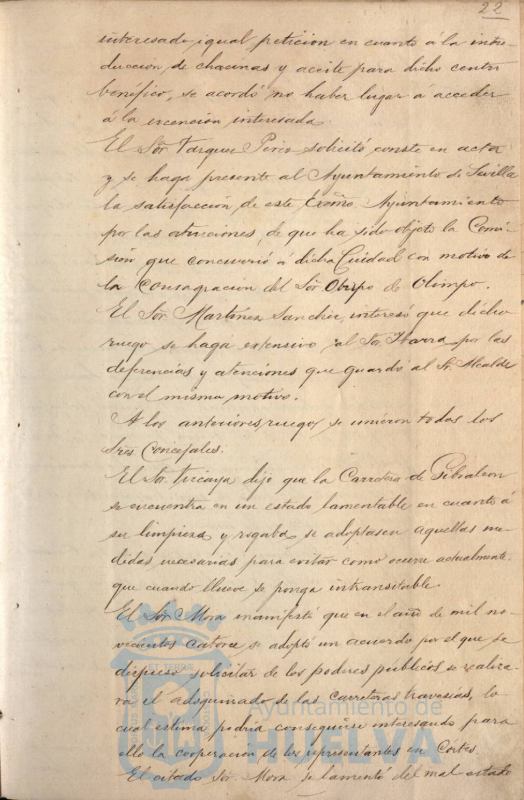 22
interesado, igual peticion en cuanto á la intro-
duccion de chacinas y aceite para dicho centro
benéfico, se acordó no haber lugar á acceder
á la excención interesada.
El Sor. Perez solicitó conste en acta
y se haga presente al Ayuntamiento de Sevilla
la satisfacción de este Excmo Ayuntamiento
por las atenciones, de que ha sido objeto la Comi-
sión que concurrió á dicha Ciudad con motivo de
la Consagracion del Sor Obispo de Olimpo.
El Sor. Martinez Sanchez, interesó que dicho
ruego se haga extensivo al Sor. Ibarra por las
deferencias y atenciones que guardó al Sr. Alcalde
con el mismo motivo.
A los anteriores ruegos se unieron todos los
Sres Concejales.
El Sor. Vizcaya dijo que la Carretera de Gibraleon
se encuentra en un estado lamentable en cuanto á
su limpieza y rogaba se adoptasen aquellas me-
didas necesarias para evitar como ocurre actualmente
que cuando llueve se ponga intransitable.
El Sor. Mora manifestó que en el año de mil no-
vecientos catorce se adoptó un acuerdo por el que se
dispuso solicitar de los poderes publicos se realiza-
ra el adoquinado de las carreteras travesias, lo
cual estima podria conseguirse interesando para
ello la cooperación de los representantes en Córtes.
El citado Sor. Mora se lamentó del mal estado
Ayuntamiento de
HUELVA